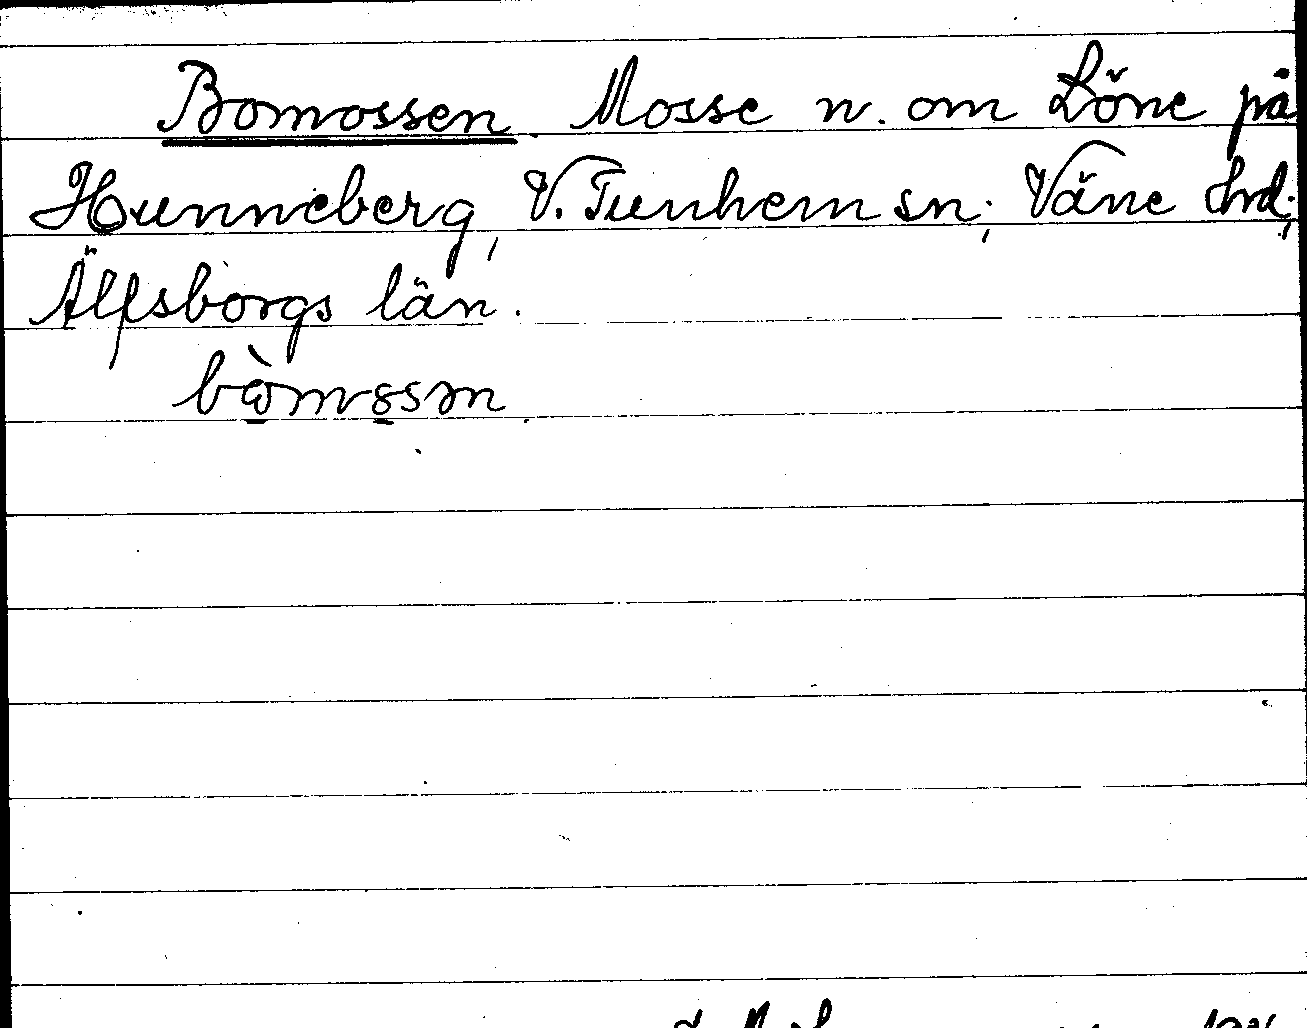 Bomossen. Mosse n. om Löne på
Hunneberg, V. Tunhem sn; Väne hrd;
Älfsborgs län.